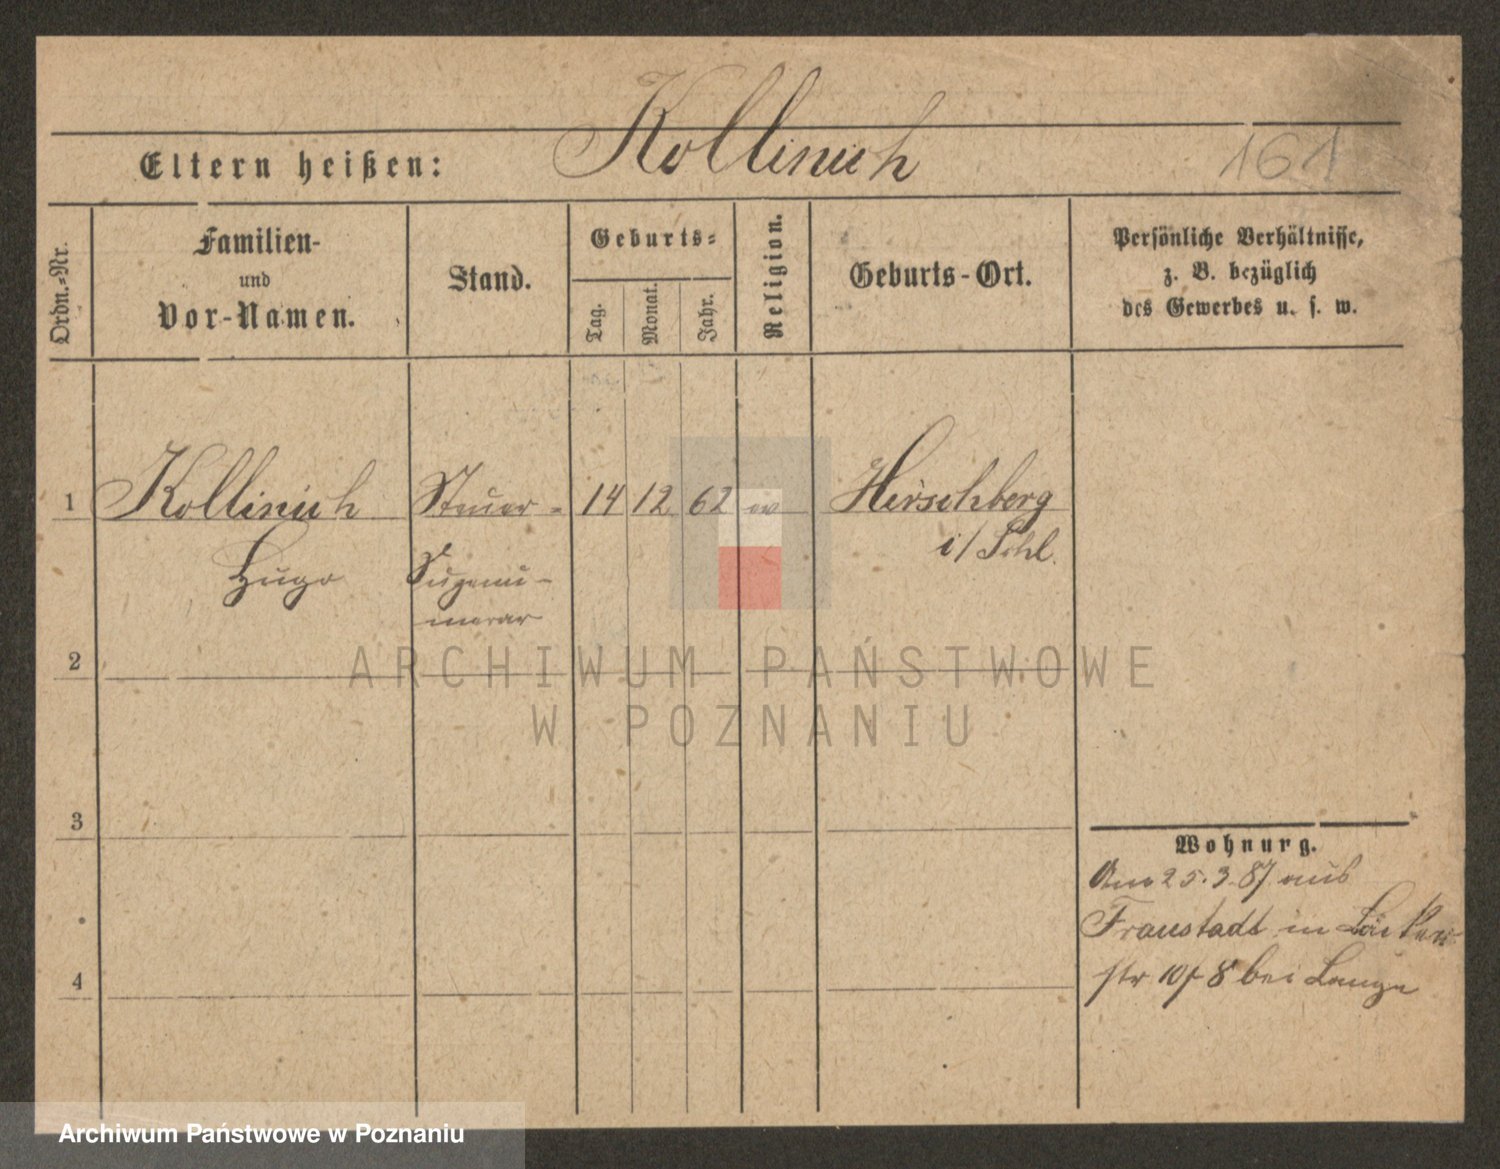 Kollinich
161
Eltern heißen:
Ordn.-Nr.
Familien-
und
Vor-Namen.
Stand.
Geburts-
Tag.
Monat.
Jahr.
Religion.
Geburts-Ort.
Persönliche Verhältnisse,
z. B. bezüglich
des Gewerbes u. s. w.
1 Kollinich Steuer- 14 12 62 ev Hirschberg
i/Schl.
Hugo
Supernu-
merar
2
ARCHIWUM PAŃSTWOWE
W POZNANIU
3
Wohnung.
25.3.87 aus
Fraustadt in
4
str bei
Archiwum Państwowe w Poznaniu